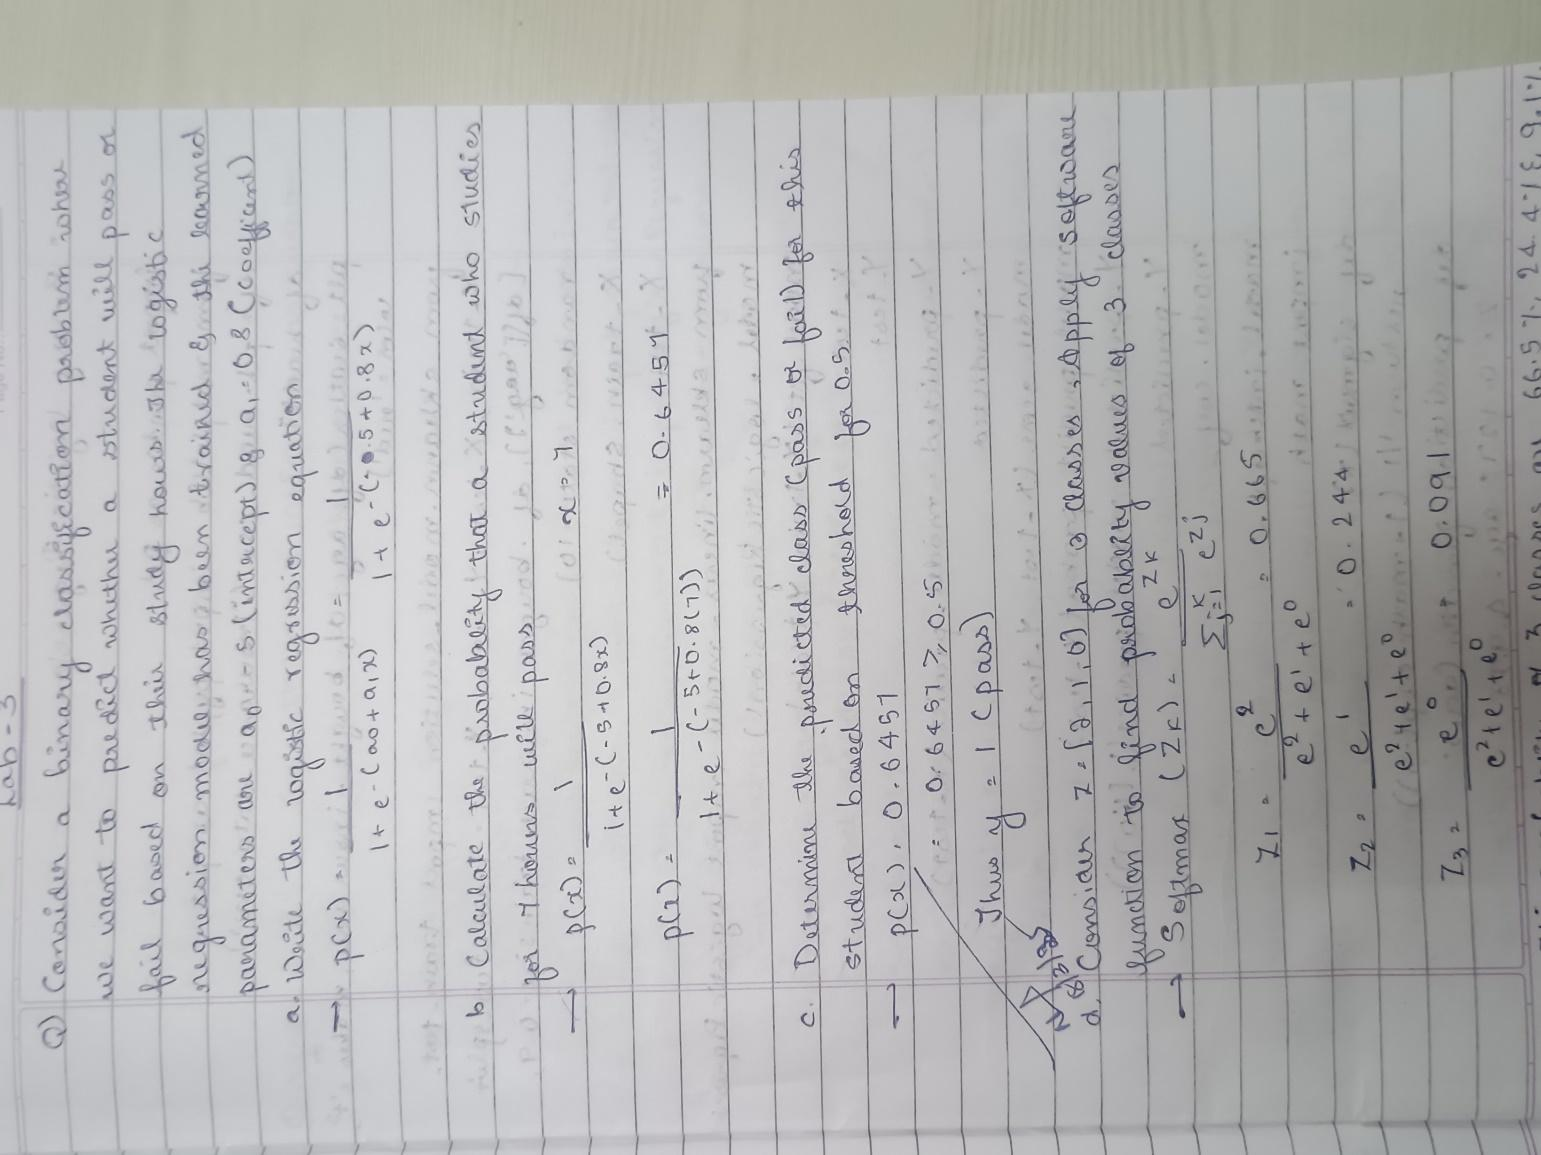 Lab-3
Q) Consider a binary classification problem where
we want to predict whether a student will pass or
fail based on their study hours. The logistic
regression model has been trained & the learned
parameters are a0 = -5 (intercept) & a1 = 0.8 (coefficient)
a. Write the logistic regression equation
→ p(x) = 1 / 1 + e^-(a0 + a1x) = 1 / 1 + e^-(-5 + 0.8x)
b. Calculate the probability that a student who studies
for 7 hours will pass
→ p(x) = 1 / 1 + e^-(-5 + 0.8x) x = 7
p(x) = 1 / 1 + e^-(-5 + 0.8(7)) = 0.6457
c. Determine the predicted class (pass or fail) for this
student based on threshold for 0.5
→ p(x) = 0.6457
= 0.6457 ≥ 0.5
Thus y = 1 (pass)
d. Consider z = [2, 1, 0] for 3 classes. Apply software
function to find probability values of 3 classes
→ Softmax (zk) = e^zk / Σ_{j=1}^{K} e^zj
Z1 = e^2 / e^2 + e^1 + e^0 = 0.665
Z2 = e^1 / e^2 + e^1 + e^0 = 0.244
Z3 = e^0 / e^2 + e^1 + e^0 0.091
of 3 classes are 66.5%, 24.4% & 9.1%